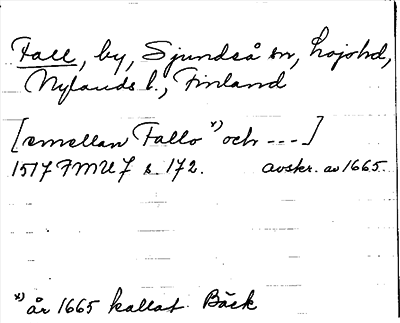 Fall, by, Sjundså sn, Lojohd,
Nylands l., Finland
[emellan Fallo x) och ---]
1517 FMU 7 s. 172. avskr. av 1665.
x) år 1665 kallat Bäck